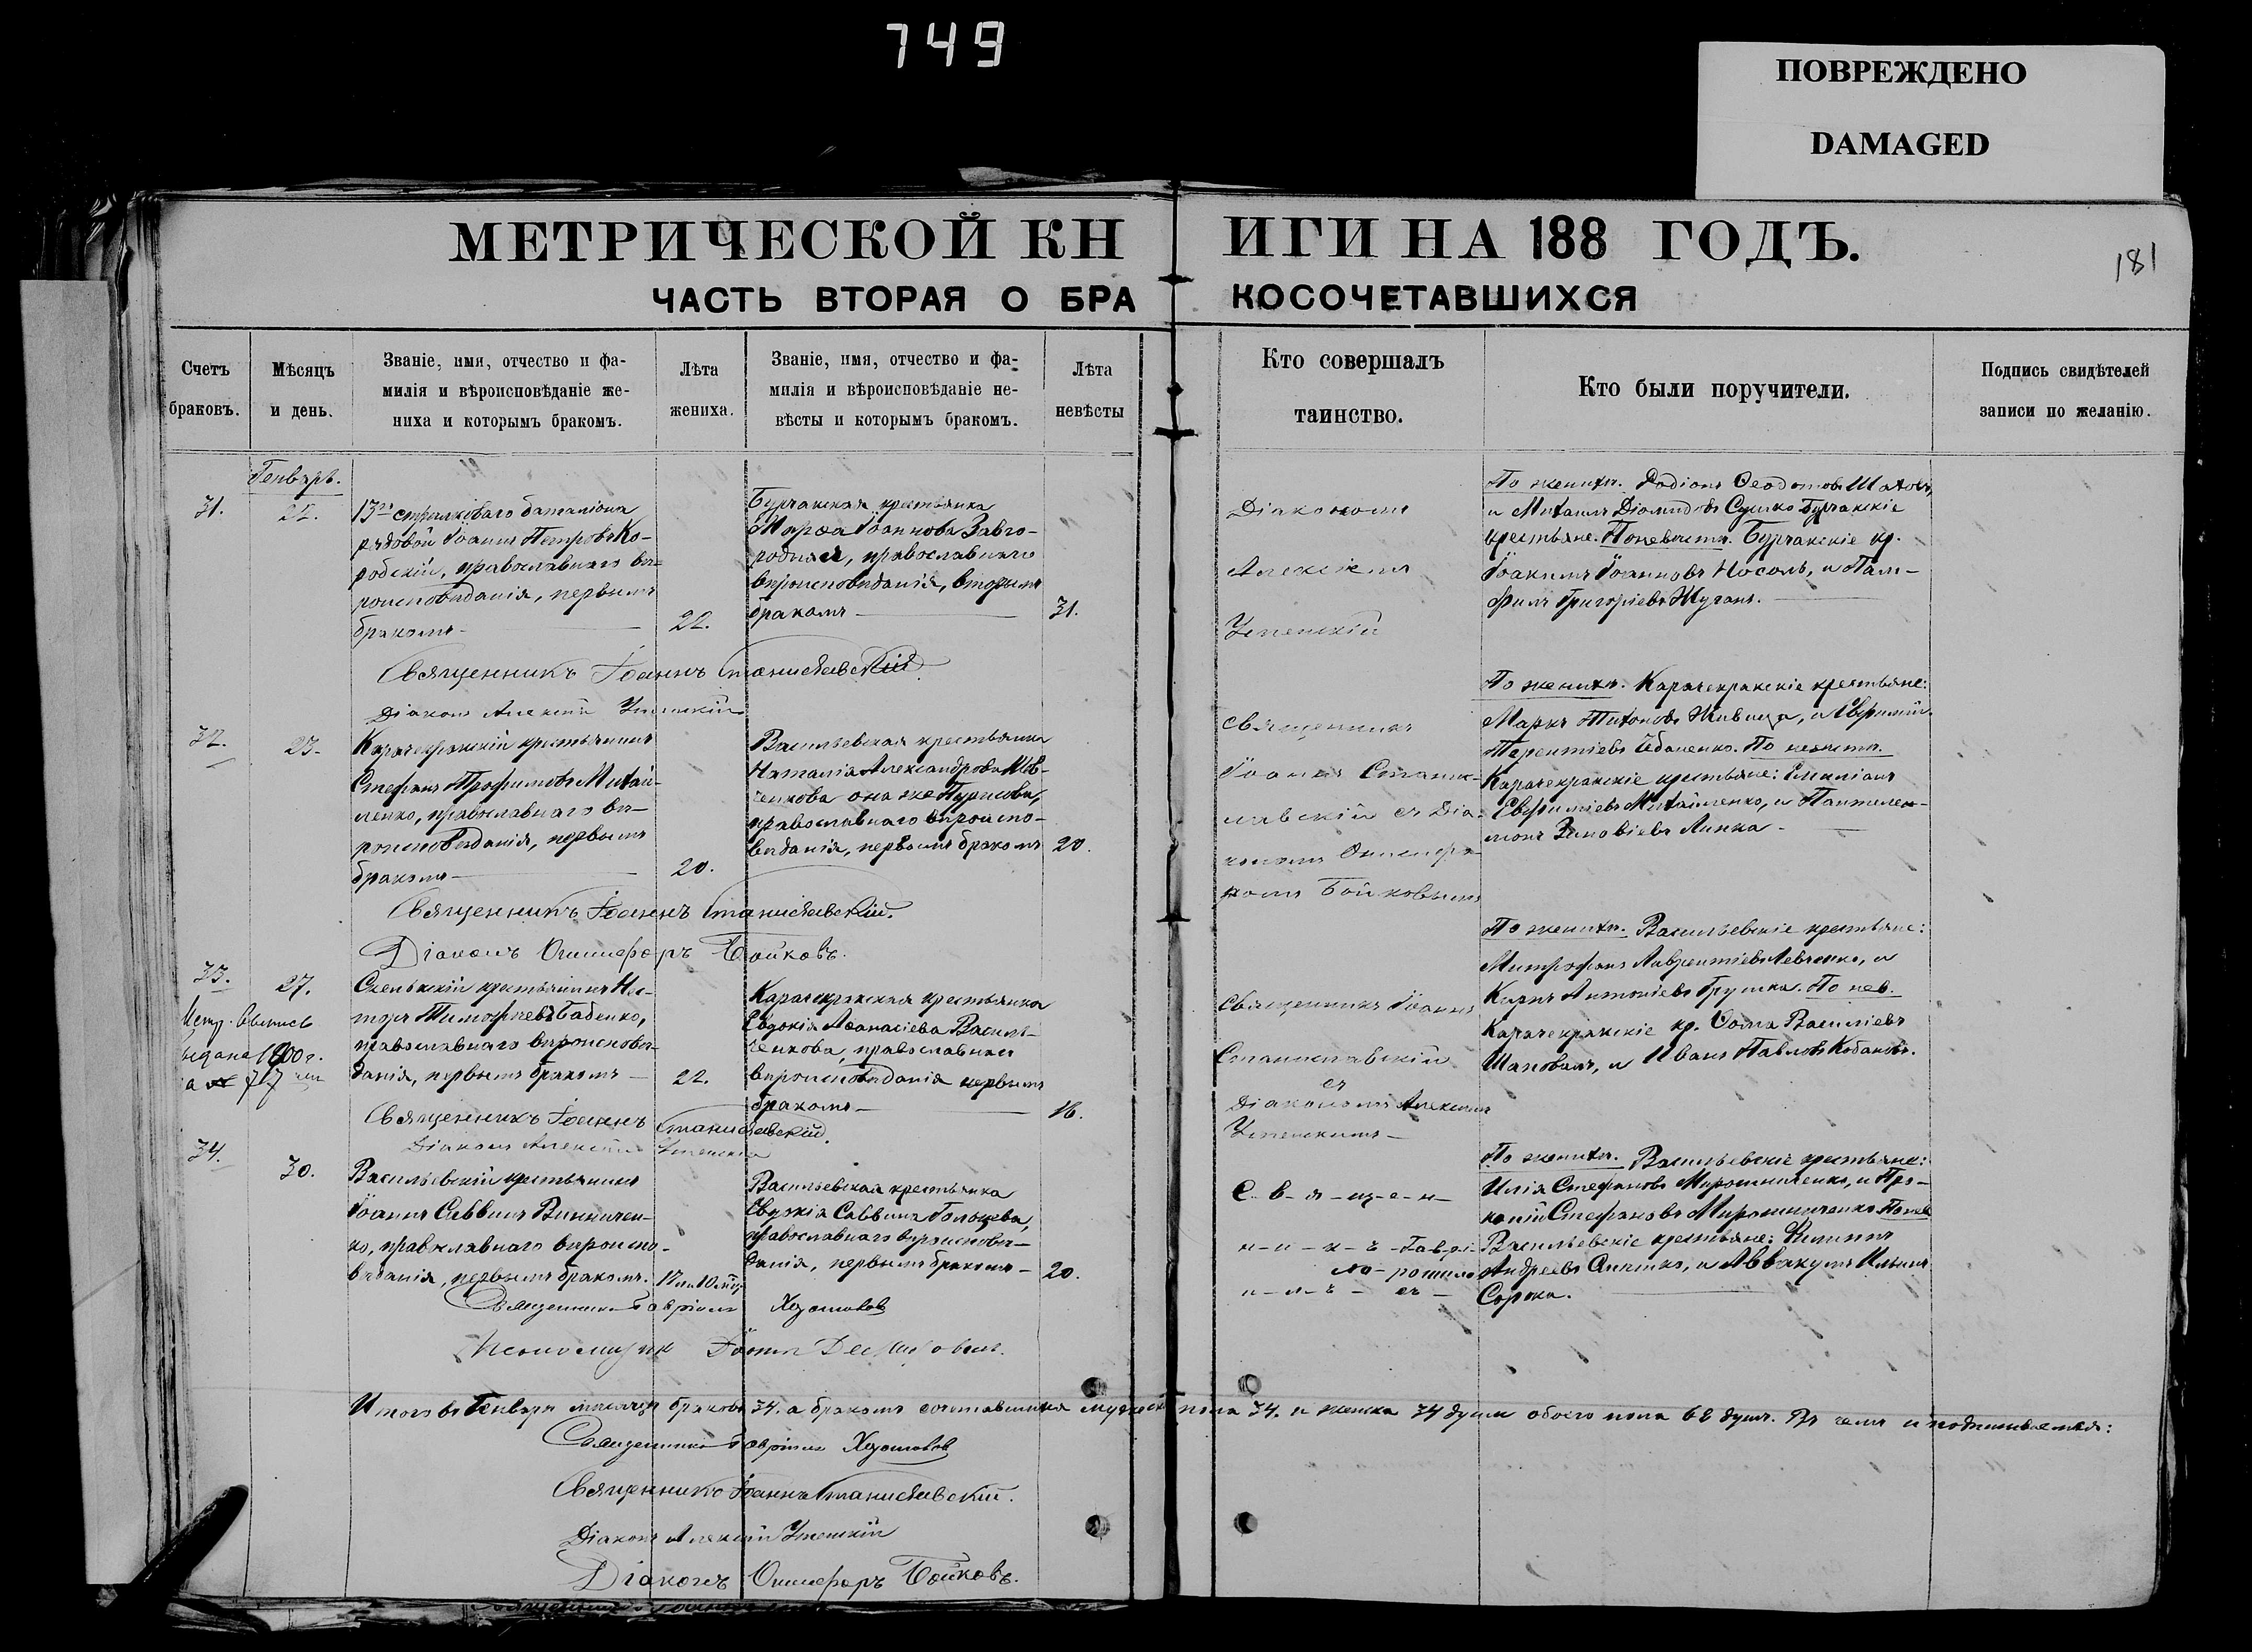 749
ПОВРЕЖДЕНО
DAMAGED
МЕТРИЧЕСКОЙ КНИГИ НА 188 ГОДЪ.
181
ЧАСТЬ ВТОРАЯ О БРАКОСОЧЕТАВШИХСЯ
Счетъ
браковъ.
Мѣсяцъ
и день.
Званіе, имя, отчество и фа-
милія и вѣроисповѣданіе же-
ниха и которымъ бракомъ.
Лѣта
жениха.
Званіе, имя, отчество и фа-
милія и вѣроисповѣданіе не-
вѣсты и которымъ бракомъ.
Лѣта
невѣсты
Кто совершалъ
таинство.
Кто были поручители.
Подпись свидѣтелей
записи по желанію.
Генварь.
31.
22.
13го стрѣлковаго баталіона
рядовой Іоаннъ Петровъ Ко-
робскій, православнаго вѣ-
роисповѣданія, первымъ
бракомъ
22.
Бурчакская крестьянка
Марѳа Іоаннова Завго-
родняя, православнаго
вѣроисповѣданія, вторымъ
бракомъ
31.
Діакономъ
Алексіемъ
Успенскій
По женихѣ. Родіонъ Ѳеодотовъ
и Михаилъ Діомидовъ Сушко Бурчакскіе
крестьяне. По невѣстѣ. Бурчакскіе кр.
Іоакимъ Іоанновъ Носолъ, и Пам-
филъ Григоріевъ
Священникъ Іоаннъ Станиславскій
Діаконъ Алексій Успенскій
32.
23.
Карачекракскій крестьянинъ
Стефанъ Трофимовъ Михай-
ленко, православнаго вѣ-
роисповѣданія, первымъ
бракомъ
20.
Васильевская крестьянка
Наталія Александрова
она же
православнаго вѣроиспо-
вѣданія, первымъ бракомъ
20.
Священникъ
Іоаннъ Станис-
лавскій съ Діа-
кономъ Онисифо-
ромъ Бойковымъ
По женихѣ. Карачекракскіе крестьяне:
Маркъ Тихоновъ Живица, и
Терентіевъ По невѣстѣ.
Карачекракскіе крестьяне: Емиліанъ
Евфиміевъ Михайленко, и Пантелеи-
монъ Зиновіевъ Липка
Священникъ Іоаннъ Станиславскій.
Діаконъ Онисифоръ Бойковъ.
33.
27.
Метр. выпись
выдана 1900 г.
717
Скельскій крестьянинъ Нес-
торъ Тимофѣевъ Бабенко,
православнаго вѣроисповѣ-
данія, первымъ бракомъ
22.
Карачекракская крестьянка
Евдокія Аѳанасіева Василь-
ченкова, православнаго
вѣроисповѣданія первымъ
бракомъ
18.
Священникъ Іоаннъ
Станиславскій
съ
Діакономъ Алексіемъ
Успенскимъ
По женихѣ. Васильевскіе крестьяне:
Митрофанъ Лаврентіевъ Левченко, и
Антоніевъ Грушка. По нев.
Карачекракскіе кр. Ѳома Василіевъ
Шаповалъ, и Иванъ Павловъ
Священникъ Іоаннъ Станиславскій.
Діаконъ Алексій Успенскій
34.
30.
Васильевскій крестьянинъ
Іоаннъ Саввинъ Винничен-
ко, православнаго вѣроиспо-
вѣданія, первымъ бракомъ.
17 л. 10 мѣц.
Васильевская крестьянка
Евдокія Саввина Гольцева,
православнаго вѣроисповѣ-
данія, первымъ бракомъ
20.
С-в-я-щ-е-н-
н-и-к-ъ-Гаврі-
По женихѣ. Васильевскіе крестьяне:
Илія Стефановъ Мирошниченко, и Про-
копій Стефановъ Мирошниченко По нев
Васильевскіе крестьяне: Филиппъ
Андреевъ и Аввакумъ Ильинъ
Сорока.
Священникъ Гавріилъ
Псаломщик Іоаннъ
Итого въ Генварѣ мѣсяцѣ браковъ 34. а бракомъ сочетавшихся мужеска пола 34. и женска 34 души обоего пола 68 душъ. Въ чемъ и подписываемся:
Священникъ Гавріилъ
Священникъ Іоаннъ Станиславскій.
Діаконъ Алексій Успенскій
Діаконъ Онисифоръ Бойковъ.